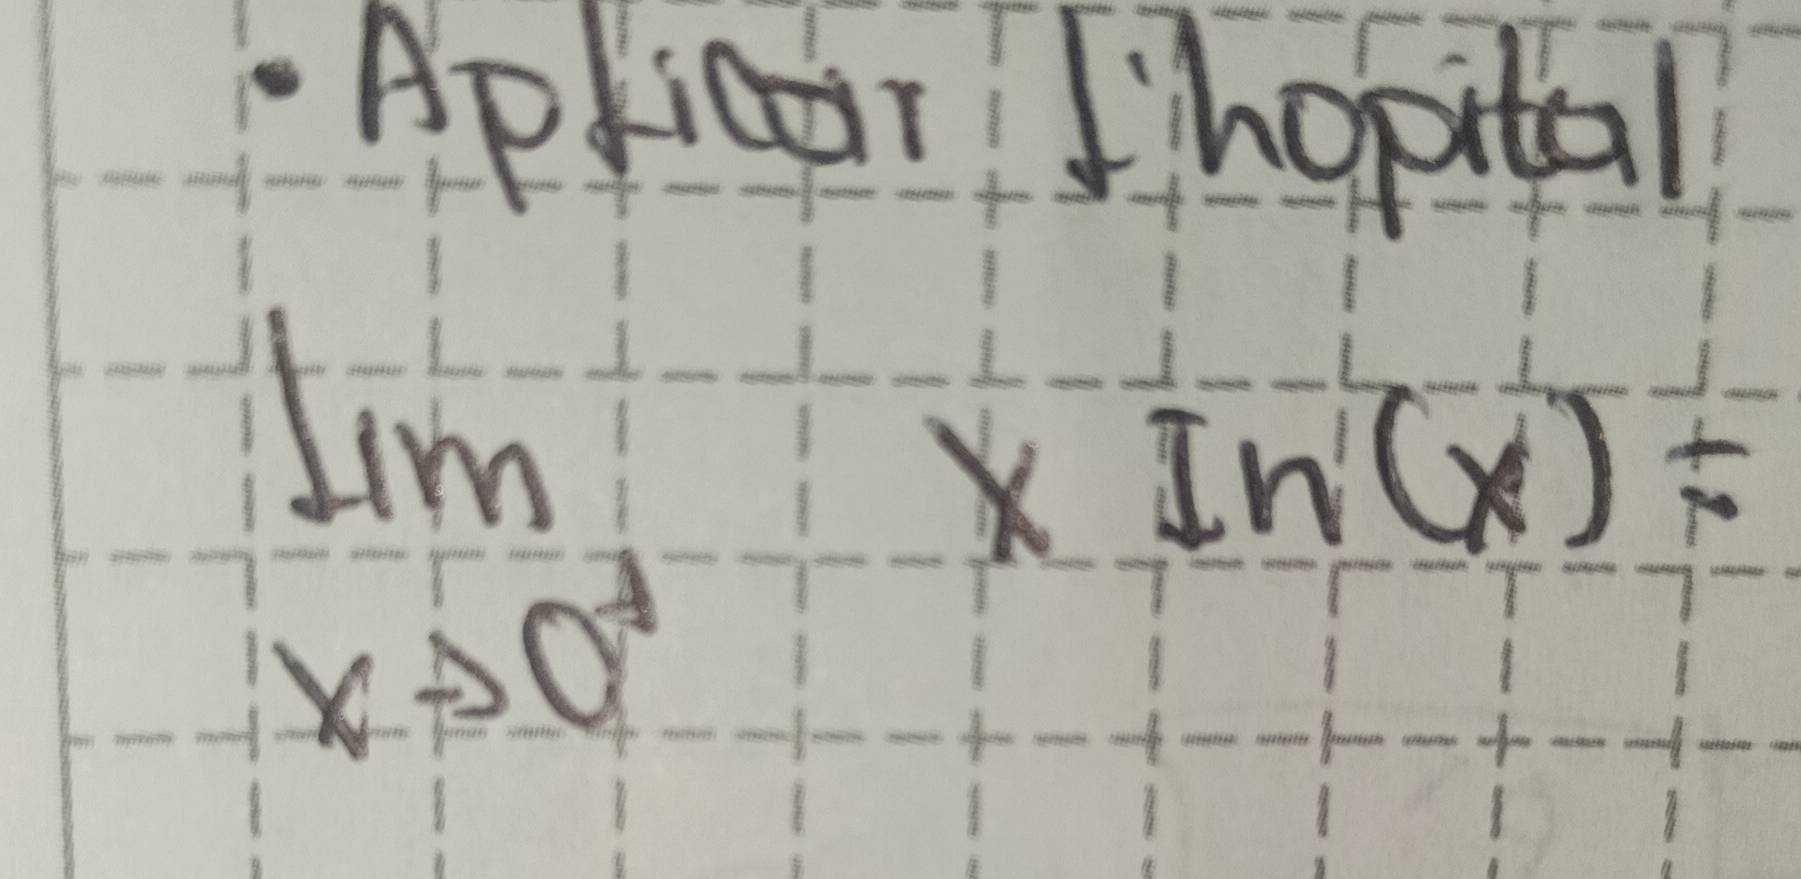 • Aplicar l'hopital
lim x ln(x) =
x→0⁺